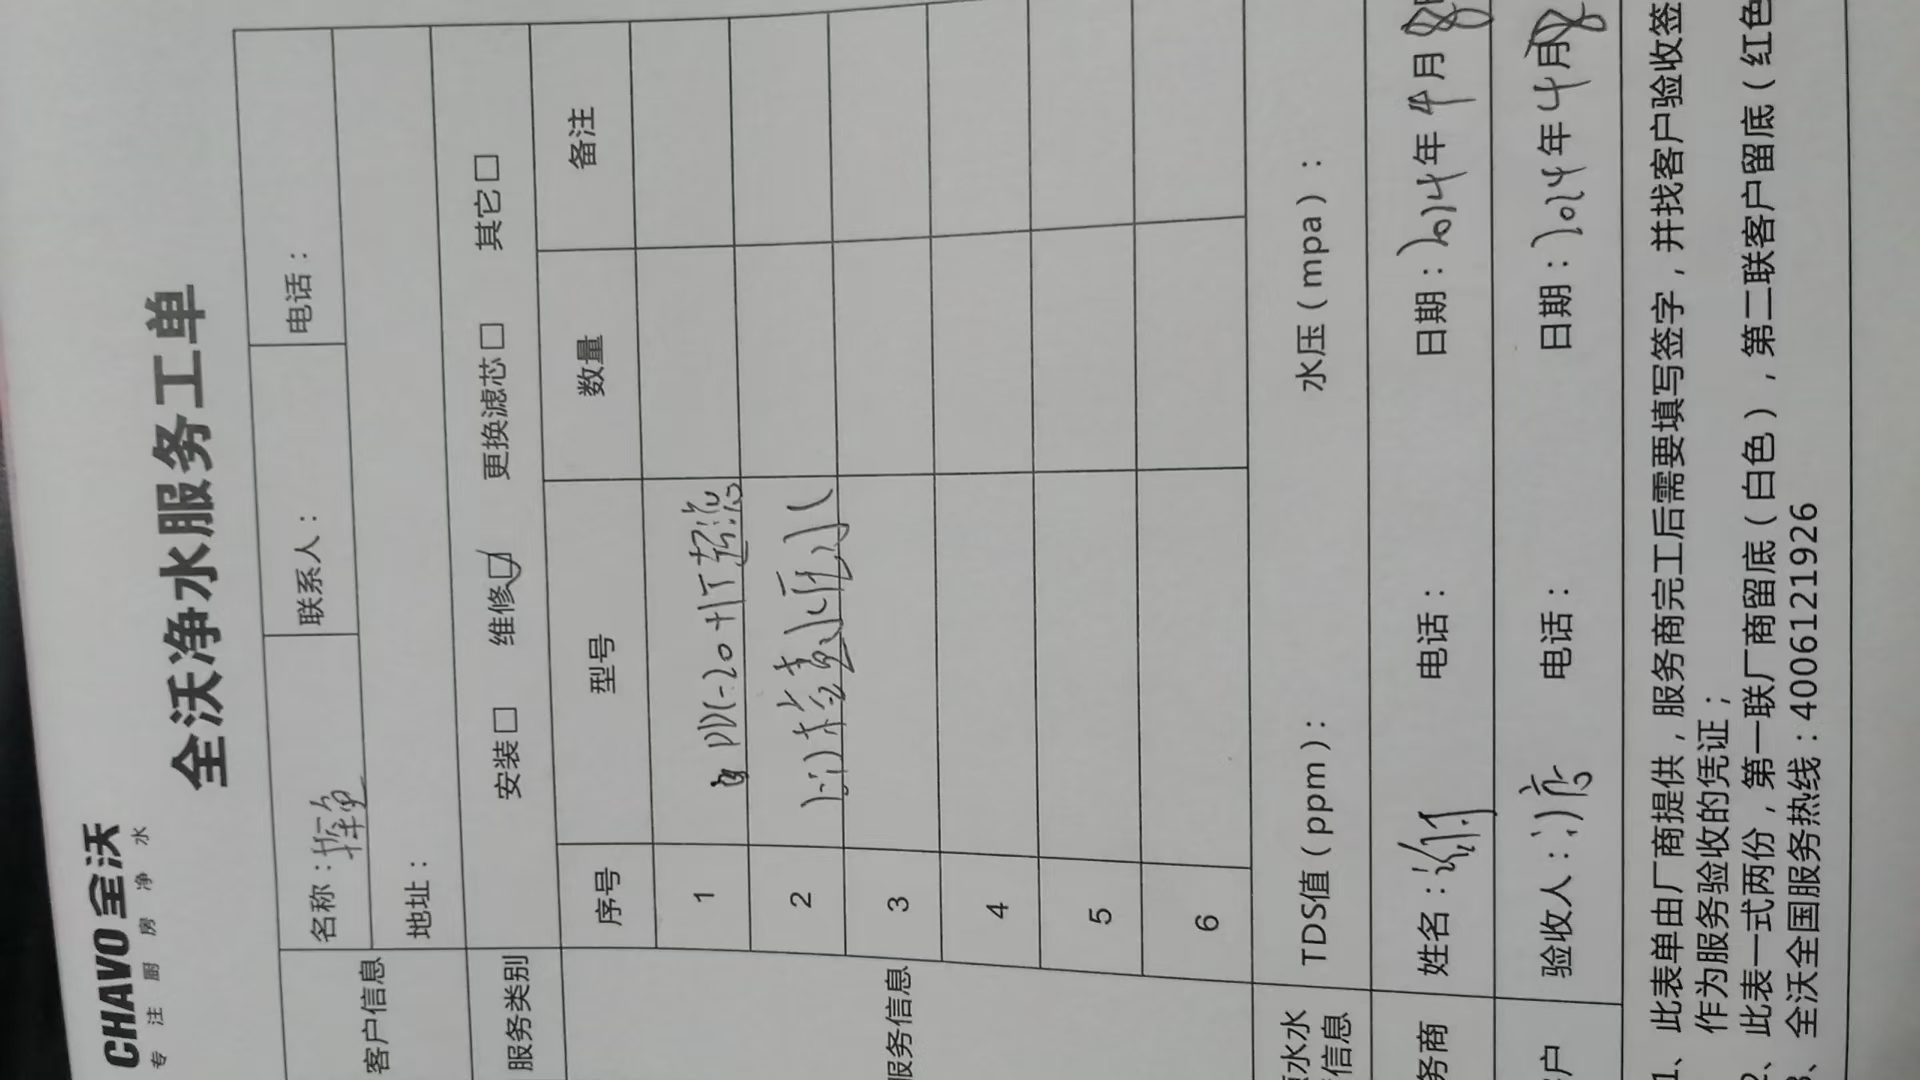 CHAVO 全沃
专注厨房净水
全沃净水服务工单
客户信息
名称： 联系人： 电话：
地址：
服务类别 安装□ 维修☑ 更换滤芯□ 其它□
服务信息
序号 型号 数量 备注
1
2
3
4
5
6
水水 信息 TDS值（ppm）： 水压（mpa）：
务商 姓名： 电话： 日期：2024年4月8
户 验收人： 电话： 日期：2024年4月8
1、此表单由厂商提供，服务商完工后需要填写签字，并找客户验收签
作为服务验收的凭证；
2、此表一式两份，第一联厂商留底（白色），第二联客户留底（红色
3、全沃全国服务热线：4006121926